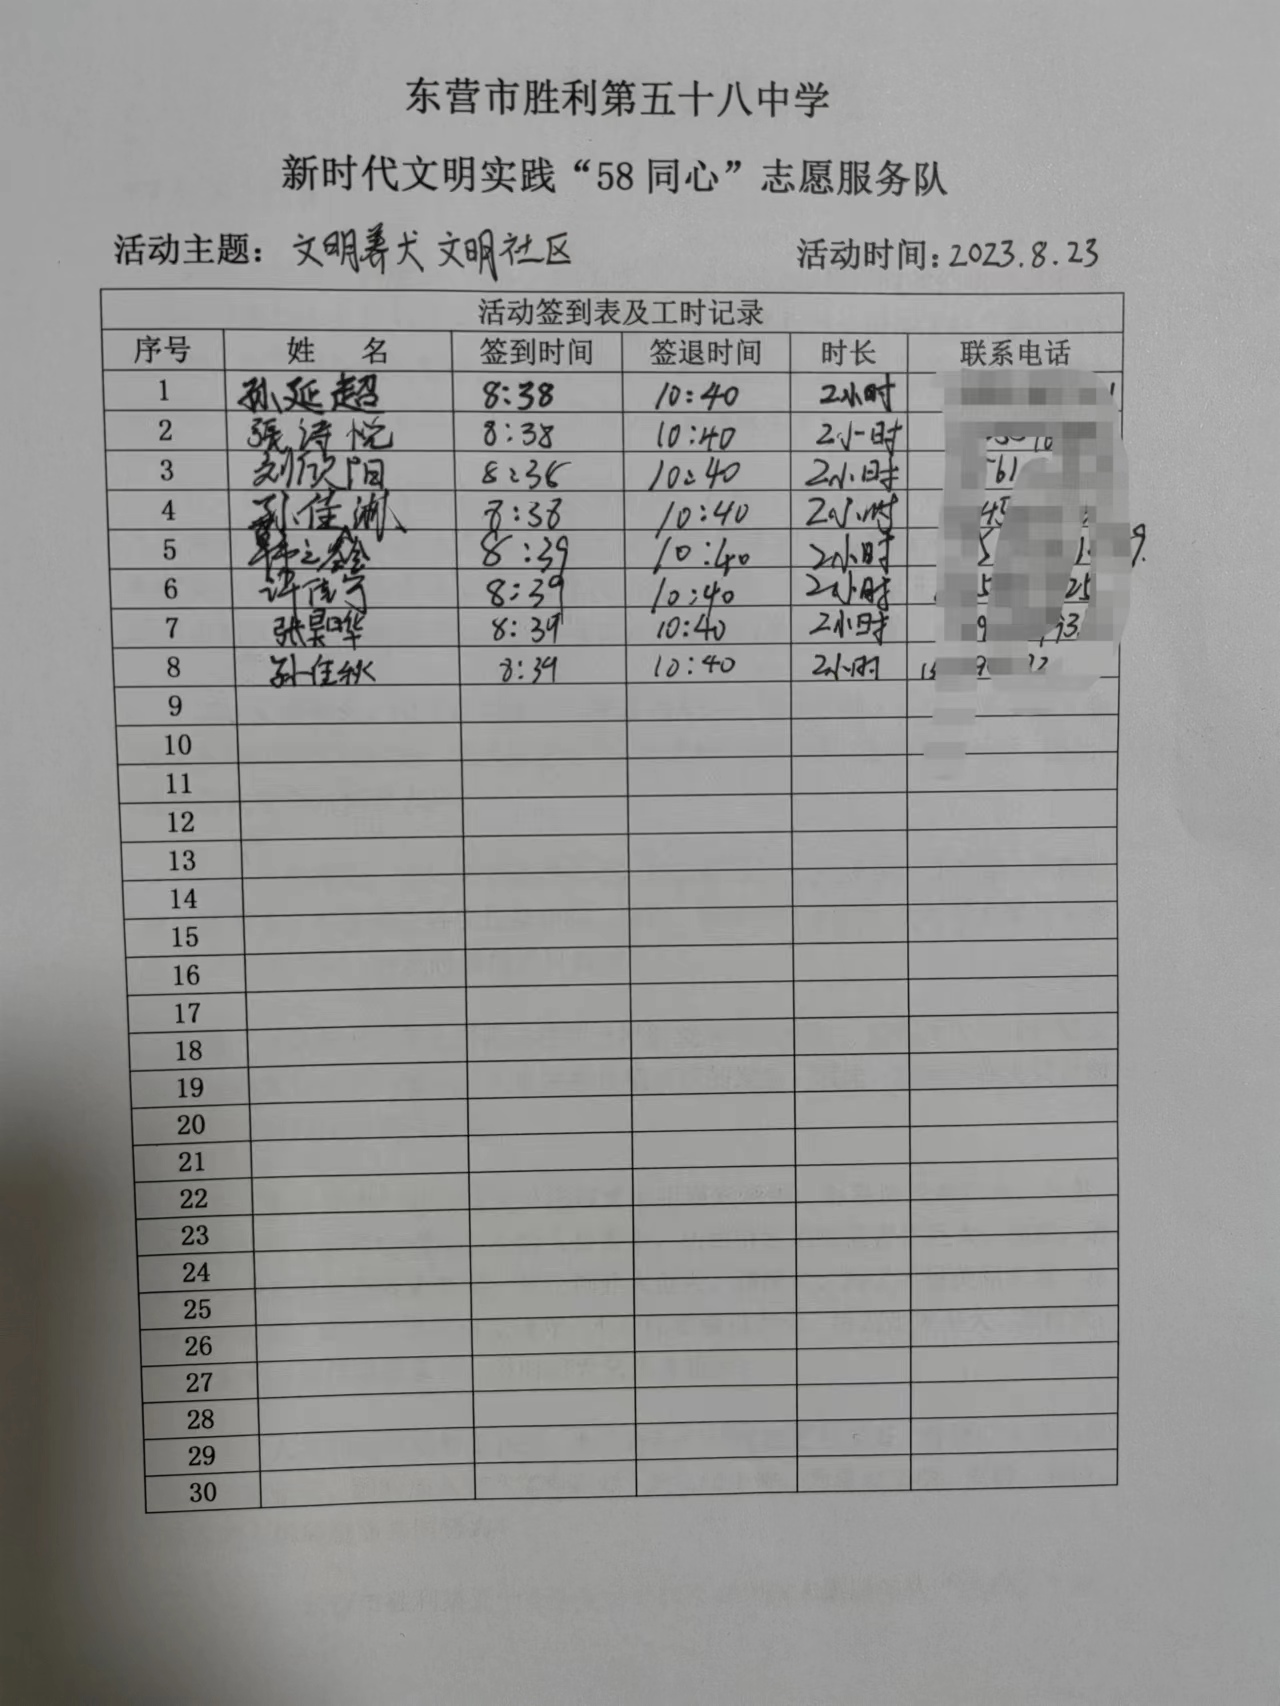 东营市胜利第五十八中学
新时代文明实践“58 同心”志愿服务队
活动主题: 文明养犬 文明社区 活动时间:2023.8.23
活动签到表及工时记录
序号 姓 名 签到时间 签退时间 时长 联系电话
1 孙延超 8:38 10:40 2小时
2 張涛悦 8:38 10:40 2小时
3 刘欣阳 10:40 2小时
4 孙佳 8:38 10:40 2小时
5 8:39 10:40 2小时
6 许佳 8:39 10:40 2小时
7 张昊晔 8:39 10:40 2小时
8 孙佳秋 8:39 10:40 2小时
9
10
11
12
13
14
15
16
17
18
19
20
21
22
23
24
25
26
27
28
29
30